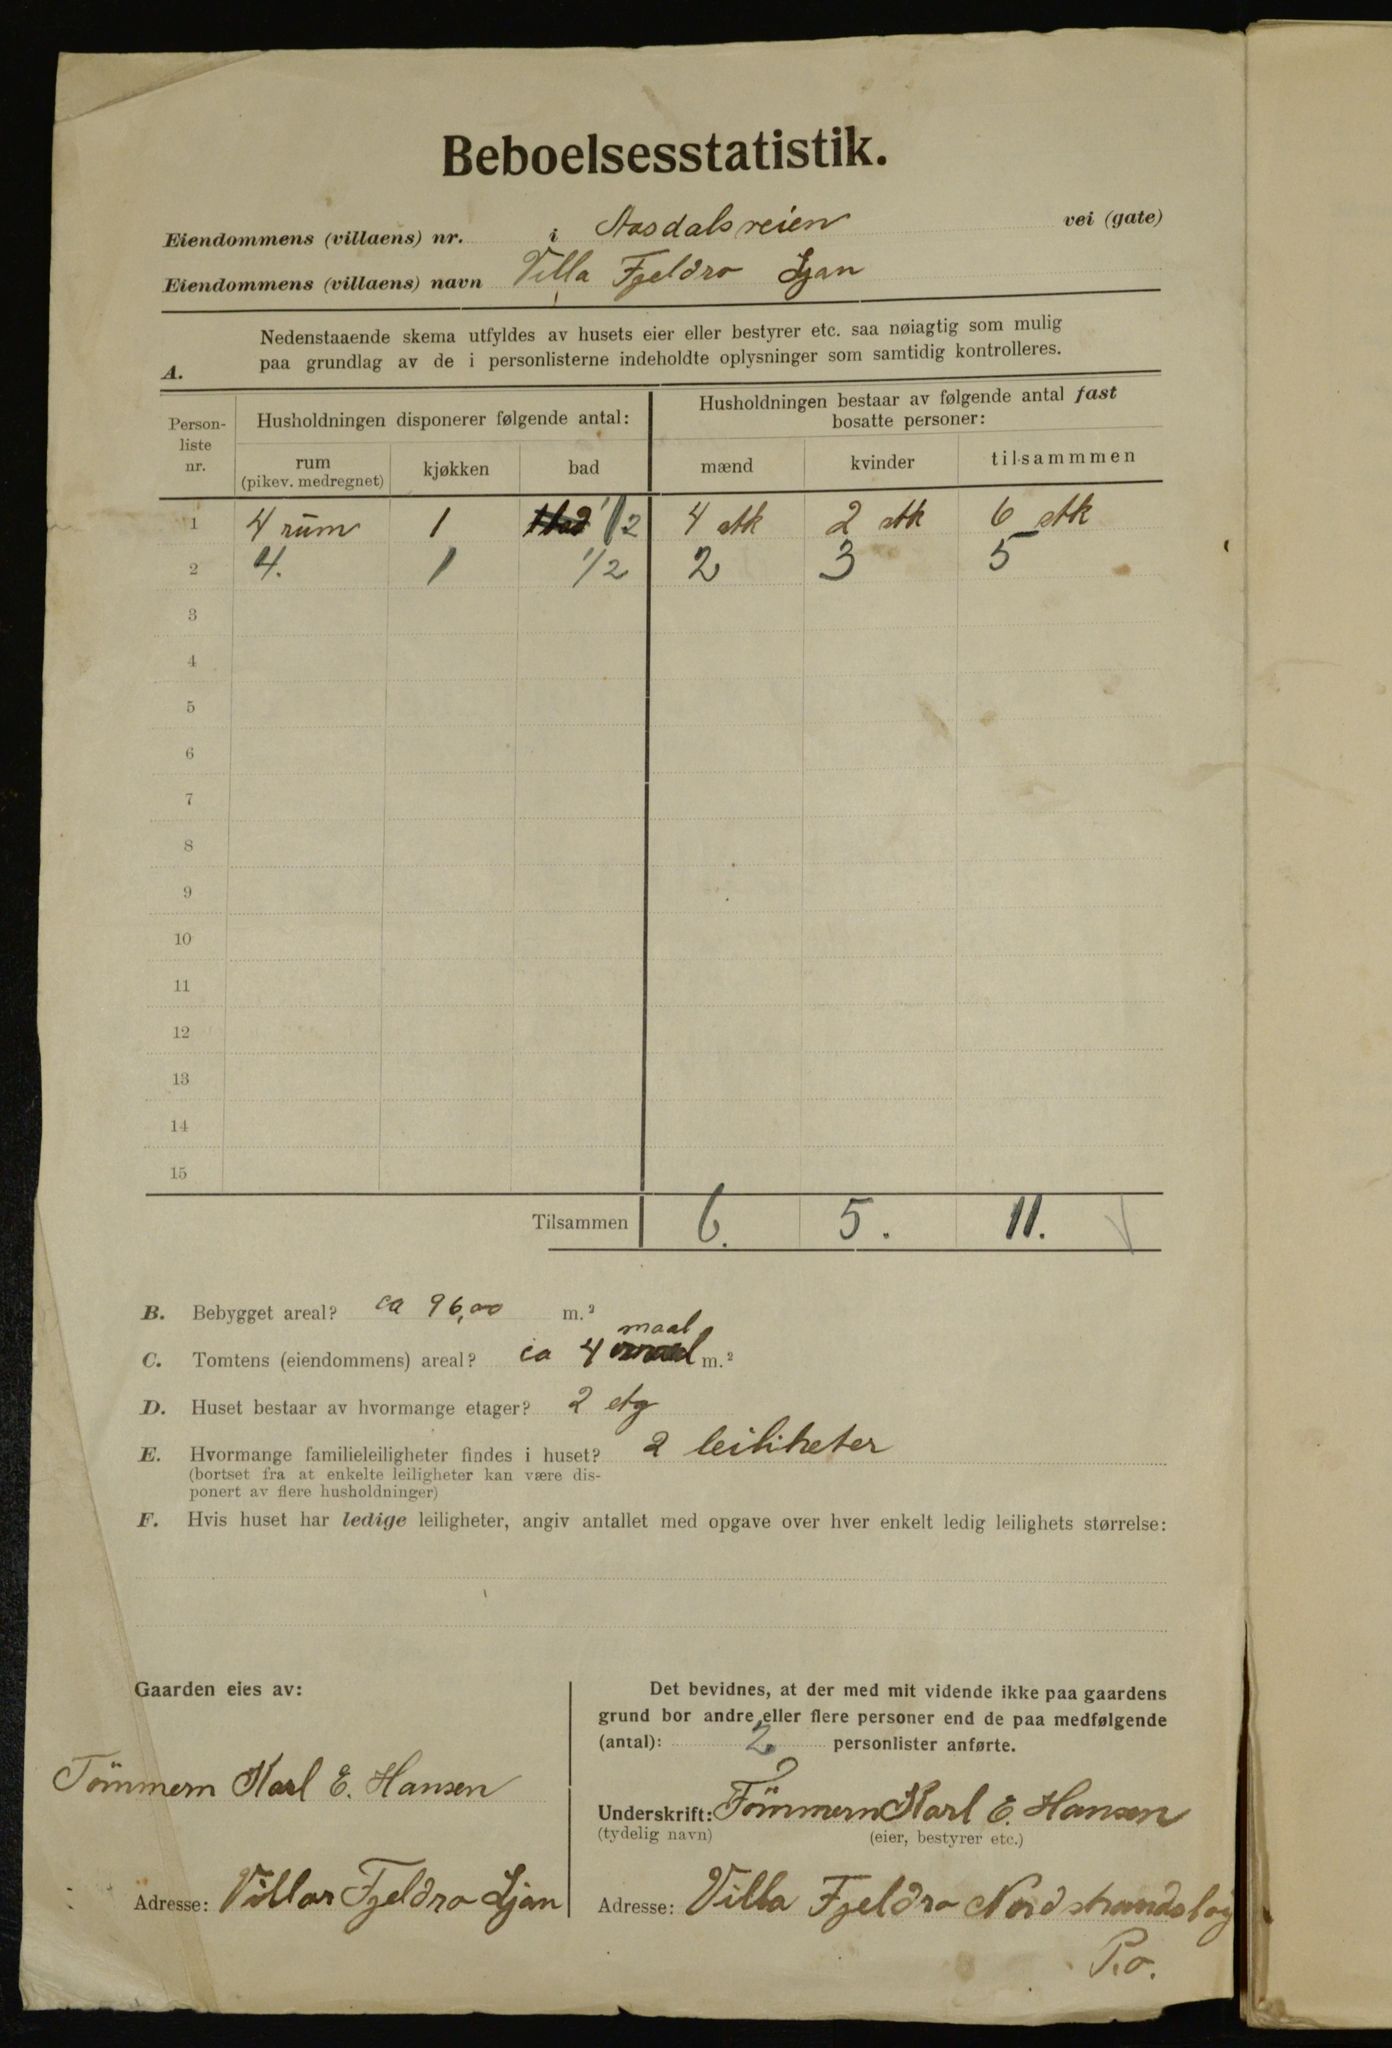 Beboelsesstatistik.
Eiendommens (villaens) nr. i Aasdalsveien vei (gate)
Eiendommens (villaens) navn Villa Fjeldro Ljan
A. Nedenstaaende skema utfyldes av husets eier eller bestyrer etc. saa nøiagtig som mulig
paa grundlag av de i personlisterne indeholdte oplysninger som samtidig kontrolleres.
Person-
liste
nr.
Husholdningen disponerer følgende antal:
Husholdningen bestaar av følgende antal fast
bosatte personer:
rum
(pikev. medregnet)
kjøkken
bad
mænd
kvinder
tilsammmen
1 4 rum 1 1/2 4 stk 2 stk 6 stk
2 4. 1 1/2 2 3 5
3
4
5
6
7
8
9
10
11
12
13
14
15
Tilsammen 6. 5. 11.
B. Bebygget areal? ca 96,00 m.²
maal
C. Tomtens (eiendommens) areal? ca 4 m.²
D. Huset bestaar av hvormange etager? 2 etg
E. Hvormange familieleiligheter findes i huset? 2 leiliheter
(bortset fra at enkelte leiligheter kan være dis-
ponert av flere husholdninger)
F. Hvis huset har ledige leiligheter, angiv antallet med opgave over hver enkelt ledig leilighets størrelse:
Gaarden eies av:
Tömmerm Karl E. Hansen
Adresse: Villa Fjeldro Ljan
Det bevidnes, at der med mit vidende ikke paa gaardens
grund bor andre eller flere personer end de paa medfølgende
(antal): 2 personlister anførte.
Underskrift: Tömmerm Karl E. Hansen
(tydelig navn) (eier, bestyrer etc.)
Adresse: Villa Fjeldro Nordstrandshøg
P.o.